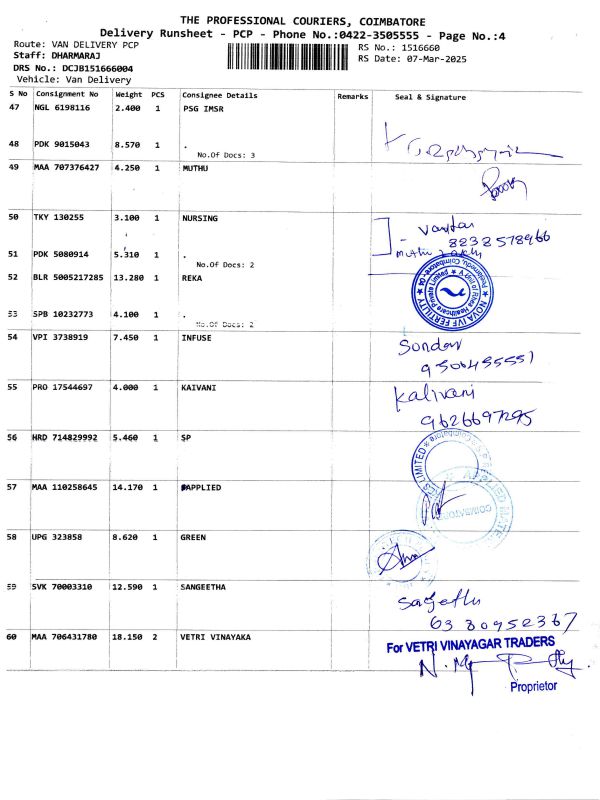 THE PROFESSIONAL COURIERS, COIMBATORE
Delivery Runsheet - PCP - Phone No.:0422-3505555 - Page No.:4
Route: VAN DELIVERY PCP
RS No.: 1516660
Staff: DHARMARAJ
RS Date: 07-Mar-2025
DRS No.: DCJB151666004
Vehicle: Van Delivery
S No Consignment No Weight PCS Consignee Details Remarks Seal & Signature
47 NGL 6198116 2.400 1 PSG IMSR
48 PDK 9015043 8.570 1 .
No.Of Docs: 3
49 MAA 707376427 4.250 1 MUTHU
50 TKY 130255 3.100 1 NURSING
8232578966
51 PDK 5080914 5.310 1 .
No.Of Docs: 2
52 BLR 5005217285 13.280 1 REKA
NOVA IVF FERTILITY
53 SPB 10232773 4.100 1 .
No.Of Docs: 2
54 VPI 3738919 7.450 1 INFUSE
Sondar
9500455551
55 PRO 17544697 4.000 1 KAIVANI
Kalivani
9626697295
56 HRD 714829992 5.460 1 SP
57 MAA 110258645 14.170 1 APPLIED
COIMBATORE
58 UPG 323858 8.620 1 GREEN
59 SVK 70003310 12.590 1 SANGEETHA
6380952367
60 MAA 706431780 18.150 2 VETRI VINAYAKA
For VETRI VINAYAGAR TRADERS
Proprietor